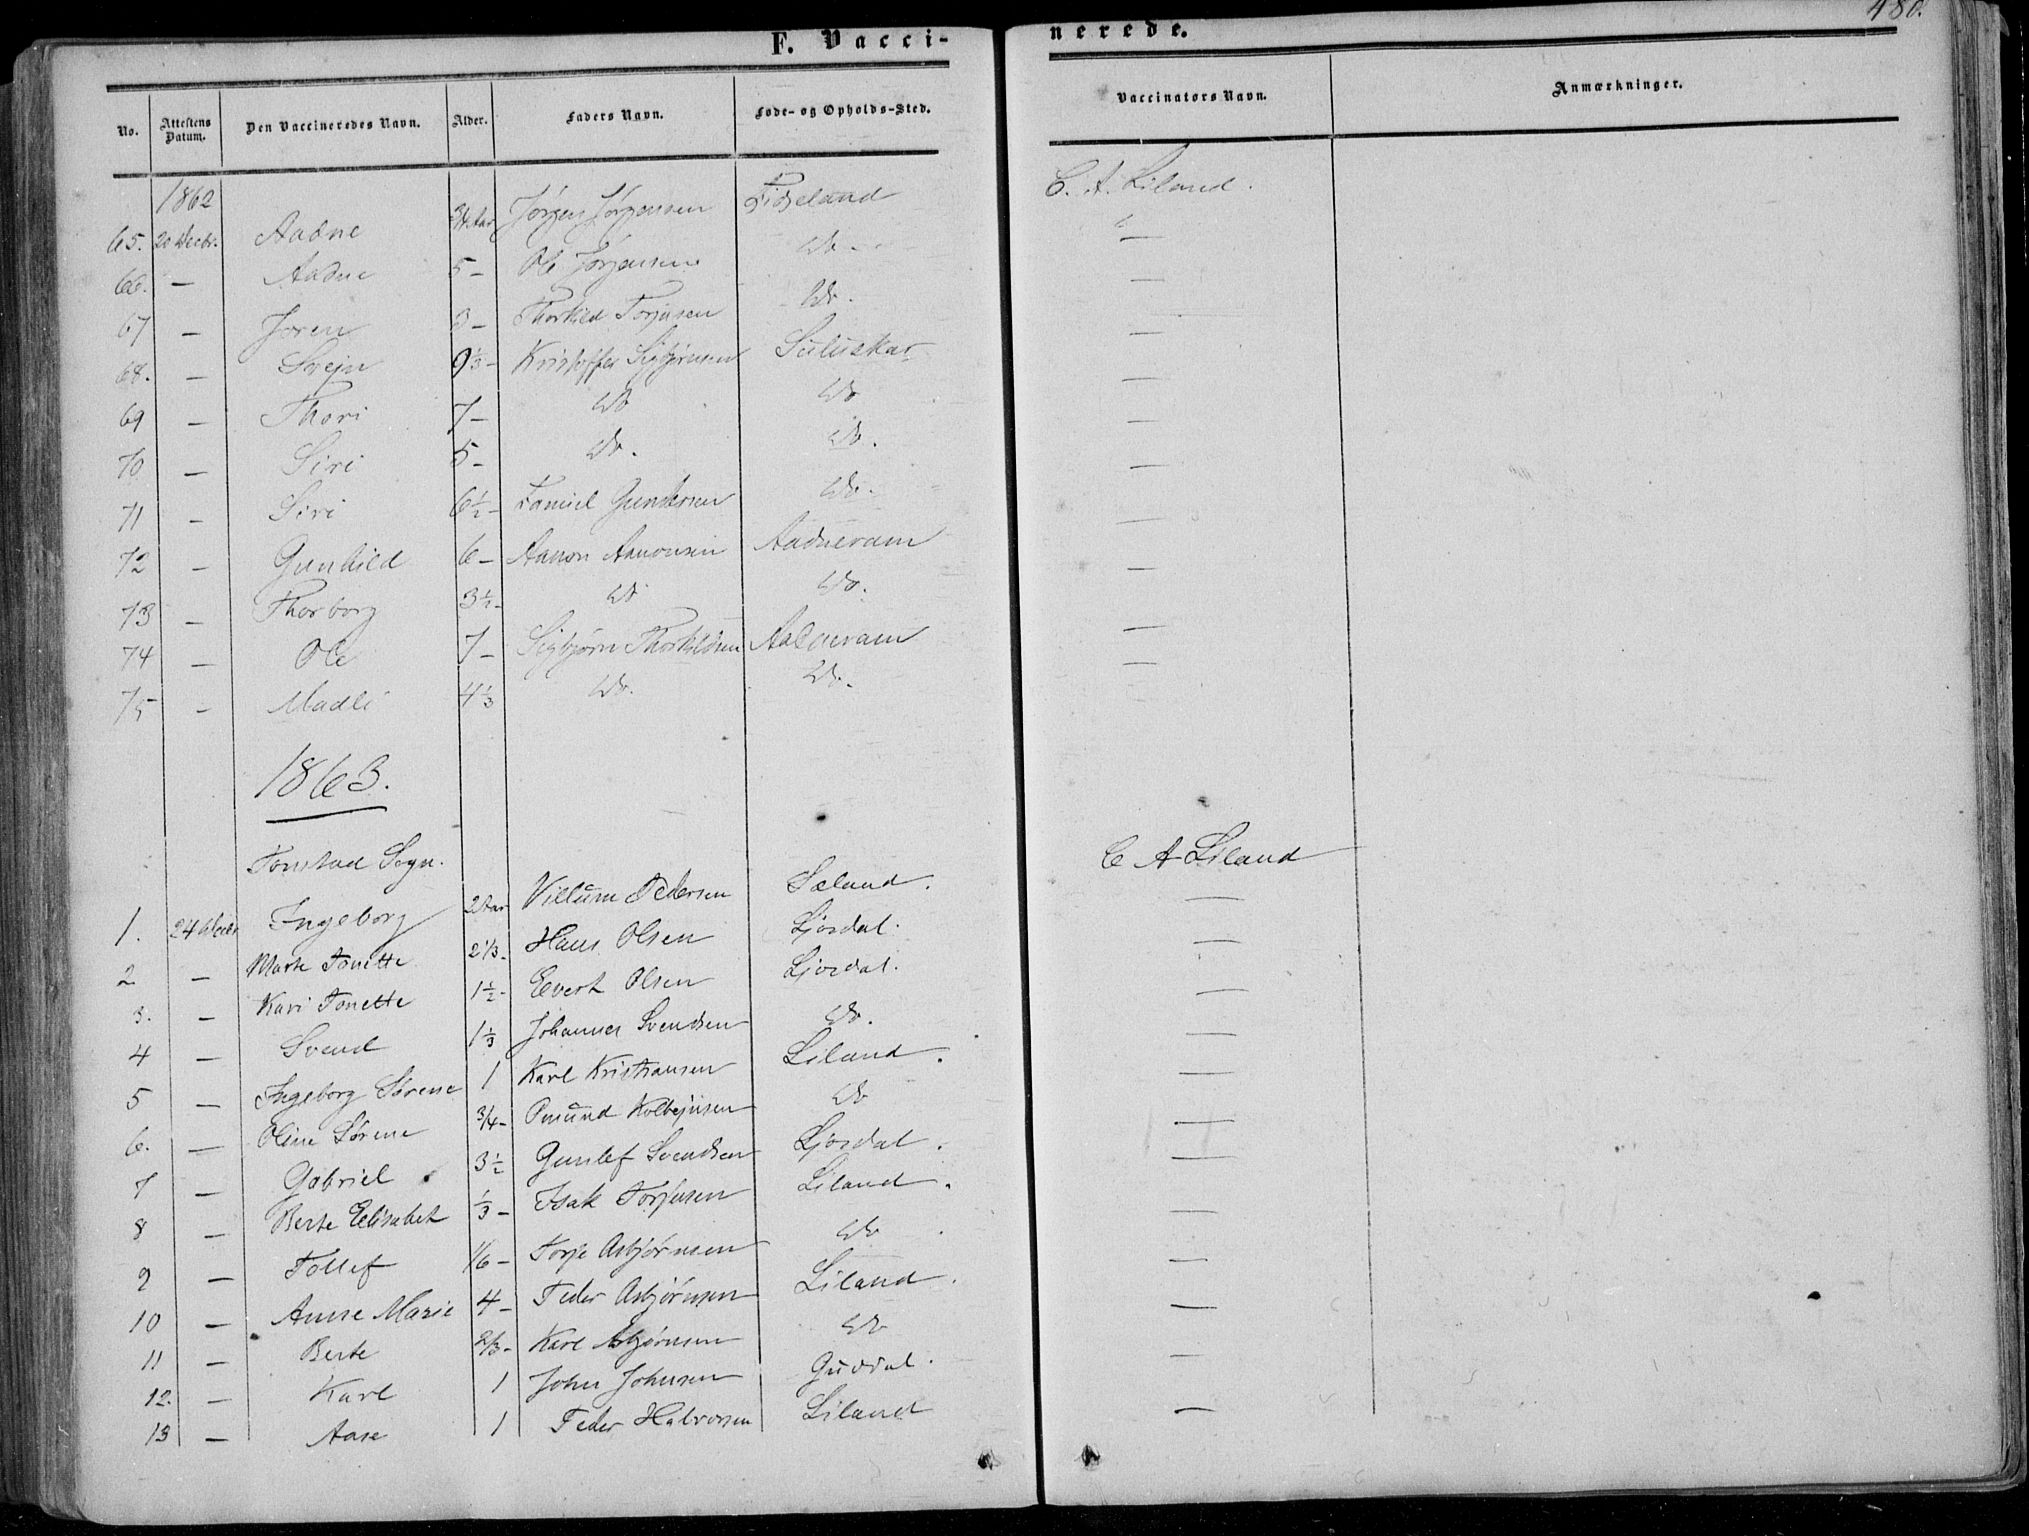 480.
F. Vacci-
nerede.
No. Attestens Datum. Den Vaccineredes Navn. Alder. Faders Navn. Føde- og Opholds-Sted. Vaccinators Navn. Anmærkninger.
1862
65. 20 Decbr. Aadne 3/4 Aar Jørgen Jørgensen Fidjeland C. A. Liland.
66. – Aadne 5 – Ole Jørgensen Do – –
67 – Joren 3 – Thorkild Torjusen Do. –
68. – Svejn 9 1/3 – Kristoffer Sigbjørnsen Suluskar –
69 – Thori 7 – Do Do –
70 – Siri 5 – Do. Do. –
71 – Siri 6 1/2 – Gundersen Do. –
72 – Gunhild 6 – Aanon Aanonsen Aadneram –
73 – Thorborg 3 1/2 – Do Do. –
74 – Ole 7 – Sigbjørn Thorkildsen Aadneram –
75 – Madli 4 1/3 Do. Do. –
1863.
Tonstad Sogn.
1. 24 Decbr Ingeborg 2 Aar Villum Pedersen Sæland. C A Liland
2 – Marte Tonette 2 1/3 – Hans Olsen Ljosdal. –
3. – Kari Tonette 1 1/2 – Evert Olsen Ljosdal. –
4 – Svend 1 1/3 Johannes Svendsen Do. –
5 – Ingeborg Sørene 1 Karl Kristiansen Liland. –
6. – Oline Sørene 3/4 – Omund Kolbejnsen Do –
7 – Gabriel 3 1/2 Gunlef Svendsen Ljosdal. –
8 – Berte Elisabet 1/3 – Isak Torjusen Liland. –
9 – Tollef 1/6 – Torje Asbjørnsen Do –
10 – Anne Marie 4 – Peder Asbjørnsen Liland. –
11 – Berte 2/3 – Karl Asbjørnsen Do –
12. – Karl 1 John Johnsen Guddal. –
13 – Aase 1 Peder Halvorsen Liland –